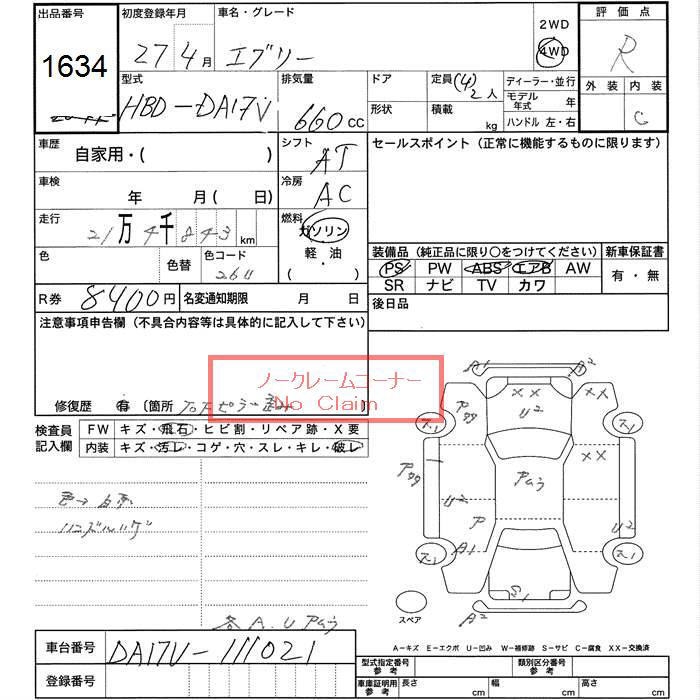 出品番号
1634
初度登録年月
27 4月
車名・グレード
エブリー
2WD
4WD
評価点
R
外装 内装
C
型式
HBD-DA17V
排気量
660 cc
ドア
形状
定員 (4) 2人
積載 kg
ディーラー・並行
モデル年式 年
ハンドル 左・右
車歴
自家用・( )
シフト
AT
セールスポイント (正常に機能するものに限ります)
車検
年 月( 日)
冷房
AC
走行
21万4千843km
燃料
ガソリン
軽・油
・( )
色
色替
色コード
26U
装備品 (純正品に限り○をつけてください)
新車保証書
PS PW ABS エアB AW
有・無
SR ナビ TV カワ
R券 8400円
名変通知期限 月 日
後日品
注意事項申告欄 (不具合内容等は具体的に記入して下さい)
ノークレームコーナー
No Claim
修復歴 有 (箇所 )
検査員記入欄
FW キズ・飛石・ヒビ割・リペア跡・X要
内装 キズ・汚レ・コゲ・穴・スレ・キレ・破レ
ハンドルハゲ
各A.U
A1 A2
XX XX
U2
XX
U2 U2
ア
A1
S1
A2
スペア
A-キズ E-エクボ U-凹み W-補修跡 S-サビ C-腐食 XX-交換済
車台番号
DA17V-111021
登録番号
型式指定番号
参考
類別区分番号
参考
車庫証明用
参考
長さ cm
幅 cm
高さ cm